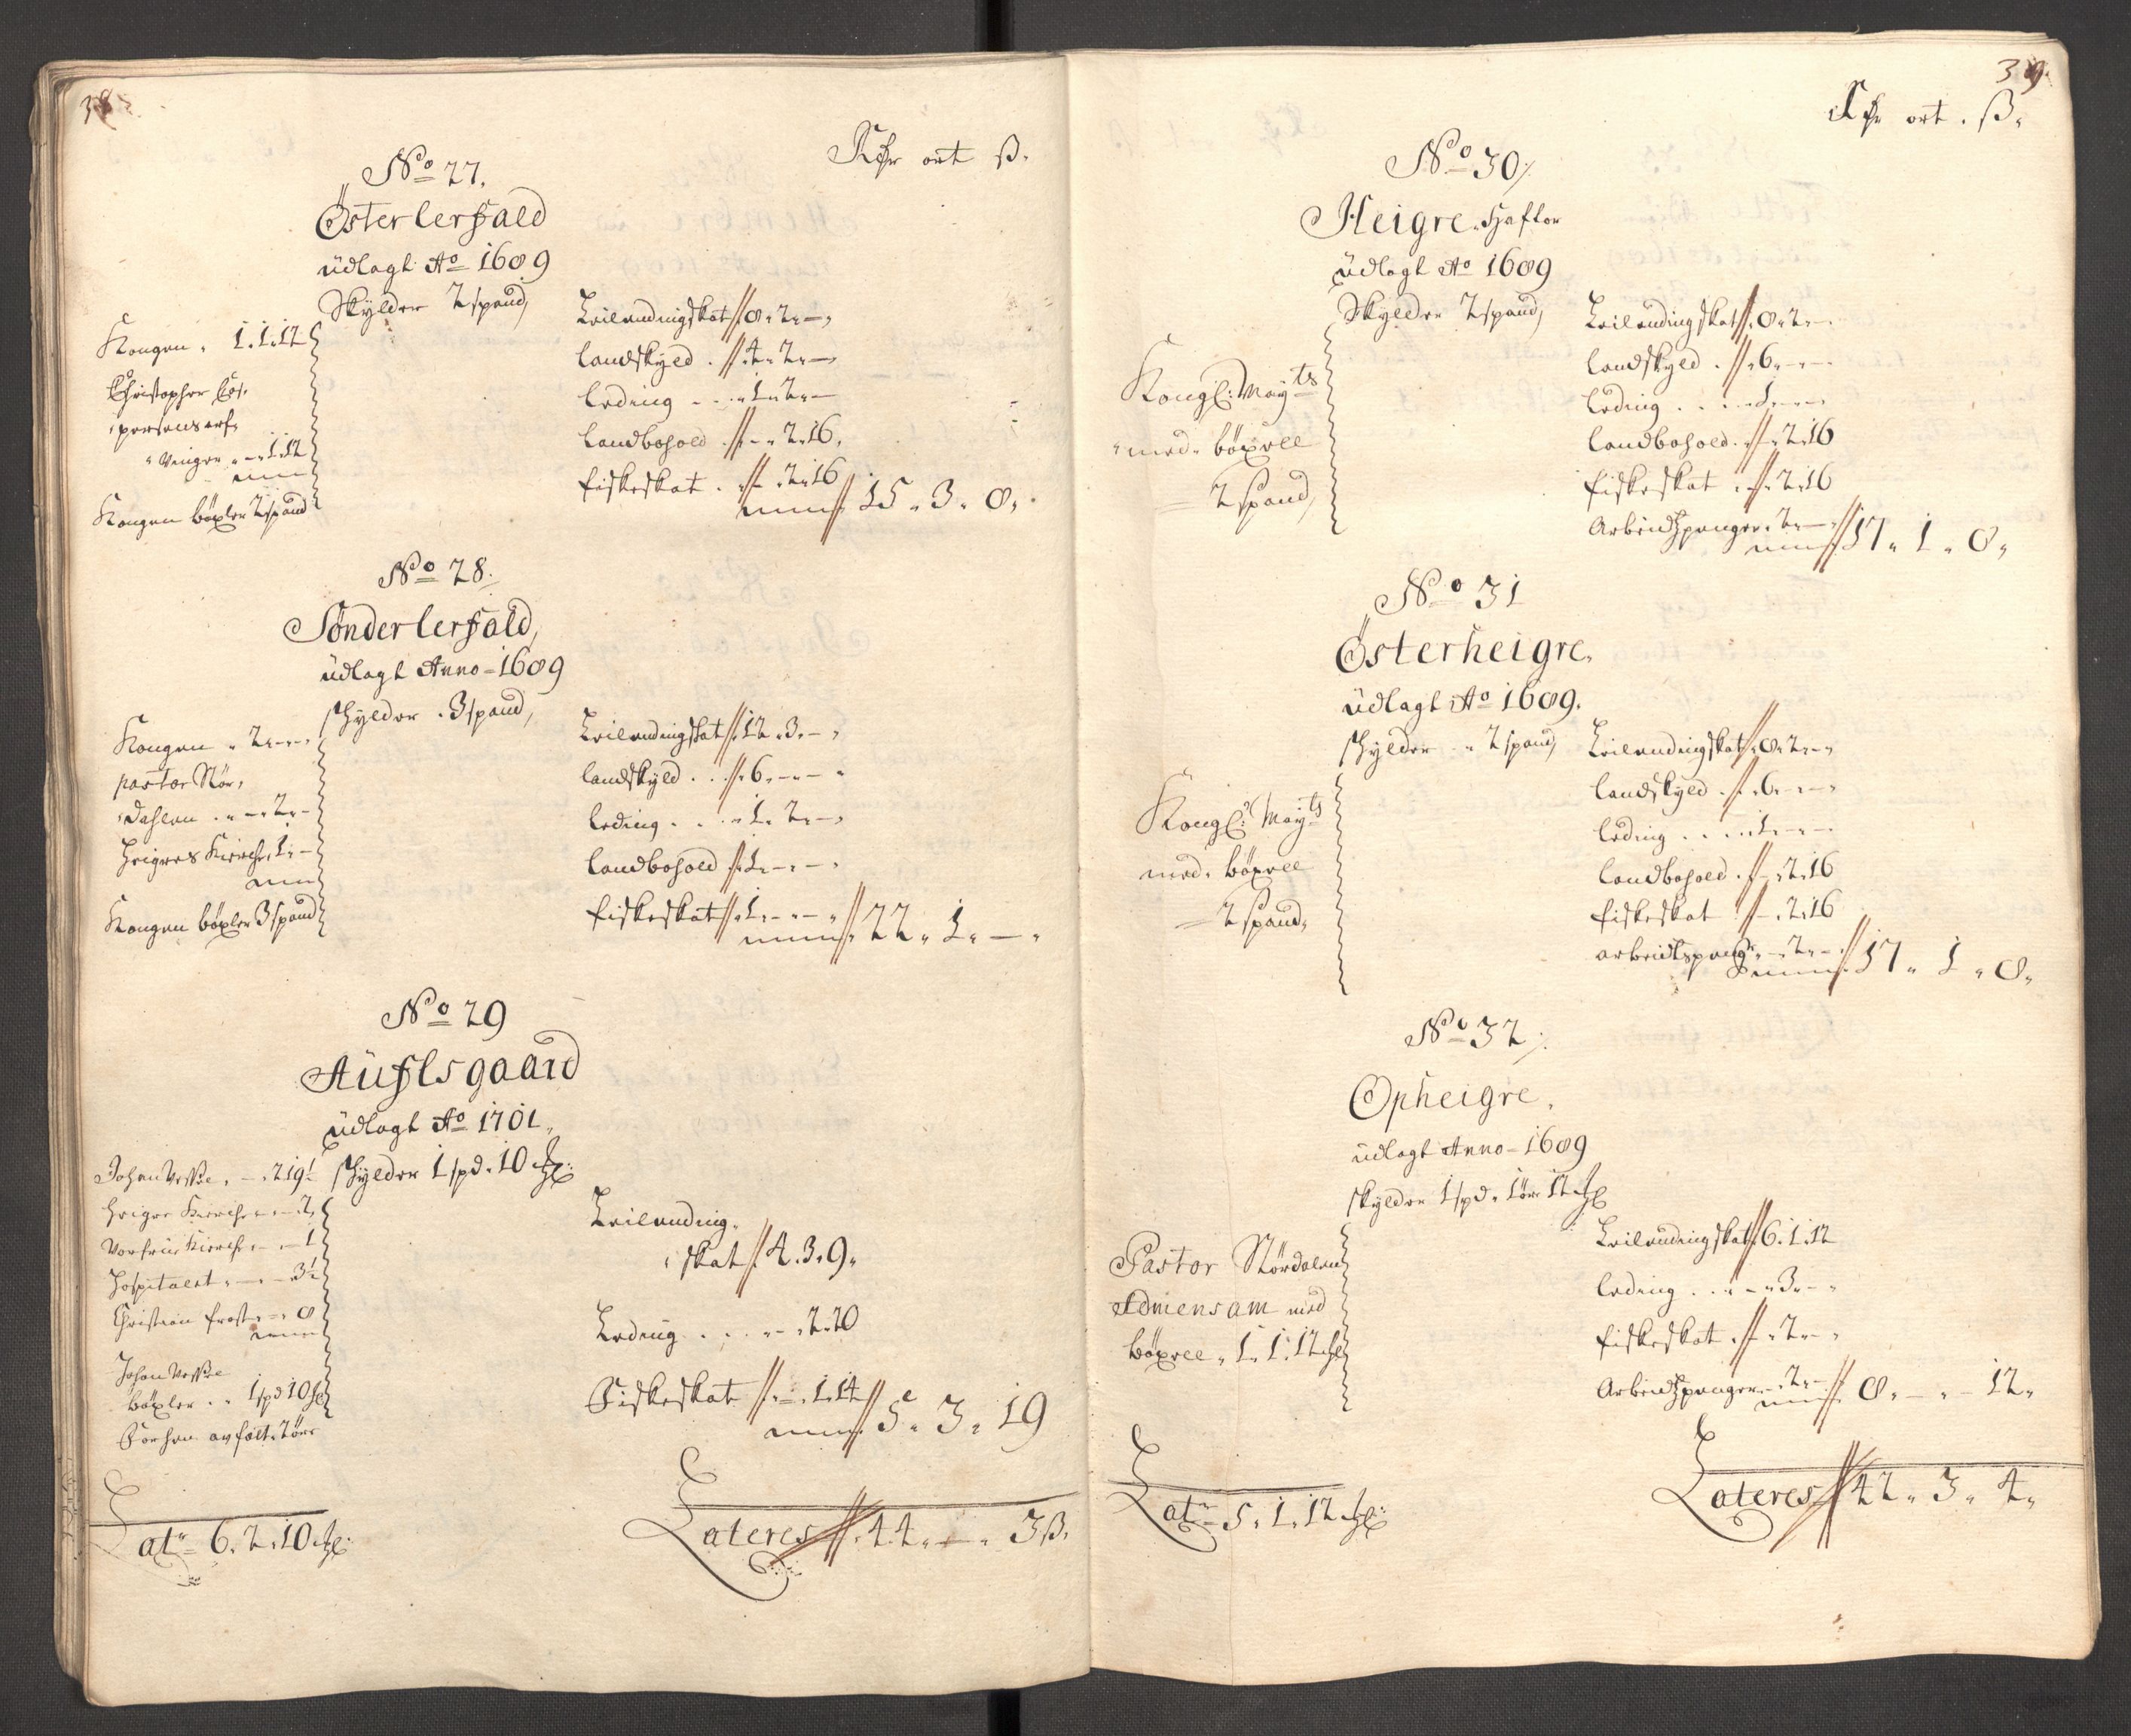 38
Rdr ort ß.
No 27.
Österlerfald
üdlagt Ao 1689
Skylder 2 spand,
Kongen . 1.1.12
Christopher Cas,
persens arf,
Vinger . - . 1.12
Kongen böxler 2 spand
Leilendingskat 8. 2. -
landskyld . 4. 2. -
leding - . . 1. 2. -
landbohold . - . 2. 16.
fiskeskat . - . 2. 16
15. 3. 8.
No 28.
Sönderlerfald,
üdlagt Anno 1689
skylder . 3 spand,
Kongen . 2. - . -
pastor Stör,
dahlen . . - . 2. -
Heigres Kirche, 1. -
Kongen böxler 3 spand
Leilendingskat 12. 3. -
landskyld . . 6. - . -
leding . . . 1. 2. -
landbohold 1. - . -
fiskeskat . 1. - . -
22. 1. -
No 29
Aüflsgaard
üdlagt Ao 1701.
skylder 1 spd. 10
Johan Vesse . - . 2. 19½
Heigre Kirche . - . 2
Vorfrüe Kirche . - . 1
Hospitalet . - . 3½
Christian frost . - . 8
Johan Vesse
böxler . . 1 spd 10
Leilending,
skat 4. 3. 9.
Leding . . . - . 2. 20
Fiskeskat . - . 1. 14
5. 3. 19
Latr 6. 2. 10
Lateres 44. - . 3 ß.
39.
Rdr ort . ß.
No 30
Heigre
üdlagt Ao 1689
Skylder 2 spand,
Kongl: Mayts
med böxell
2 spand,
Leilendingskat 8. 2. -
landskyld . 6. - . -
leding . . . 1. - . -
landbohold . - . 2. 16
fiskeskat . - . 2. 16
Arbeidspenger . 2. -
17. 1. 8.
No 31
Österheigre.
üdlagt Ao 1689.
skylder . 2 spand,
Kongl: Mayts
med böxell
2 spand,
Leilendingskat 8. 2. -
landskyld . 6. - . -
leding . . . 1. - . -
landbohold . - . 2. 16
fiskeskat - . 2. 16
arbeidspeng . - . 2. -
17. 1. 8.
No 32.
Opheigre.
üdlagt Anno 1689
skylder 1 spd. 1 ör 12
Pastor Stördalen
med
böxell . 1. 1. 12
Leilendingskat 6. 1. 12
leding . . . - . 3. -
fiskeskat . - . 2. -
Arbeidspenger . - . 2. -
8. - . 12.
Latr 5. 1. 12
Lateres 42. 3. 4.